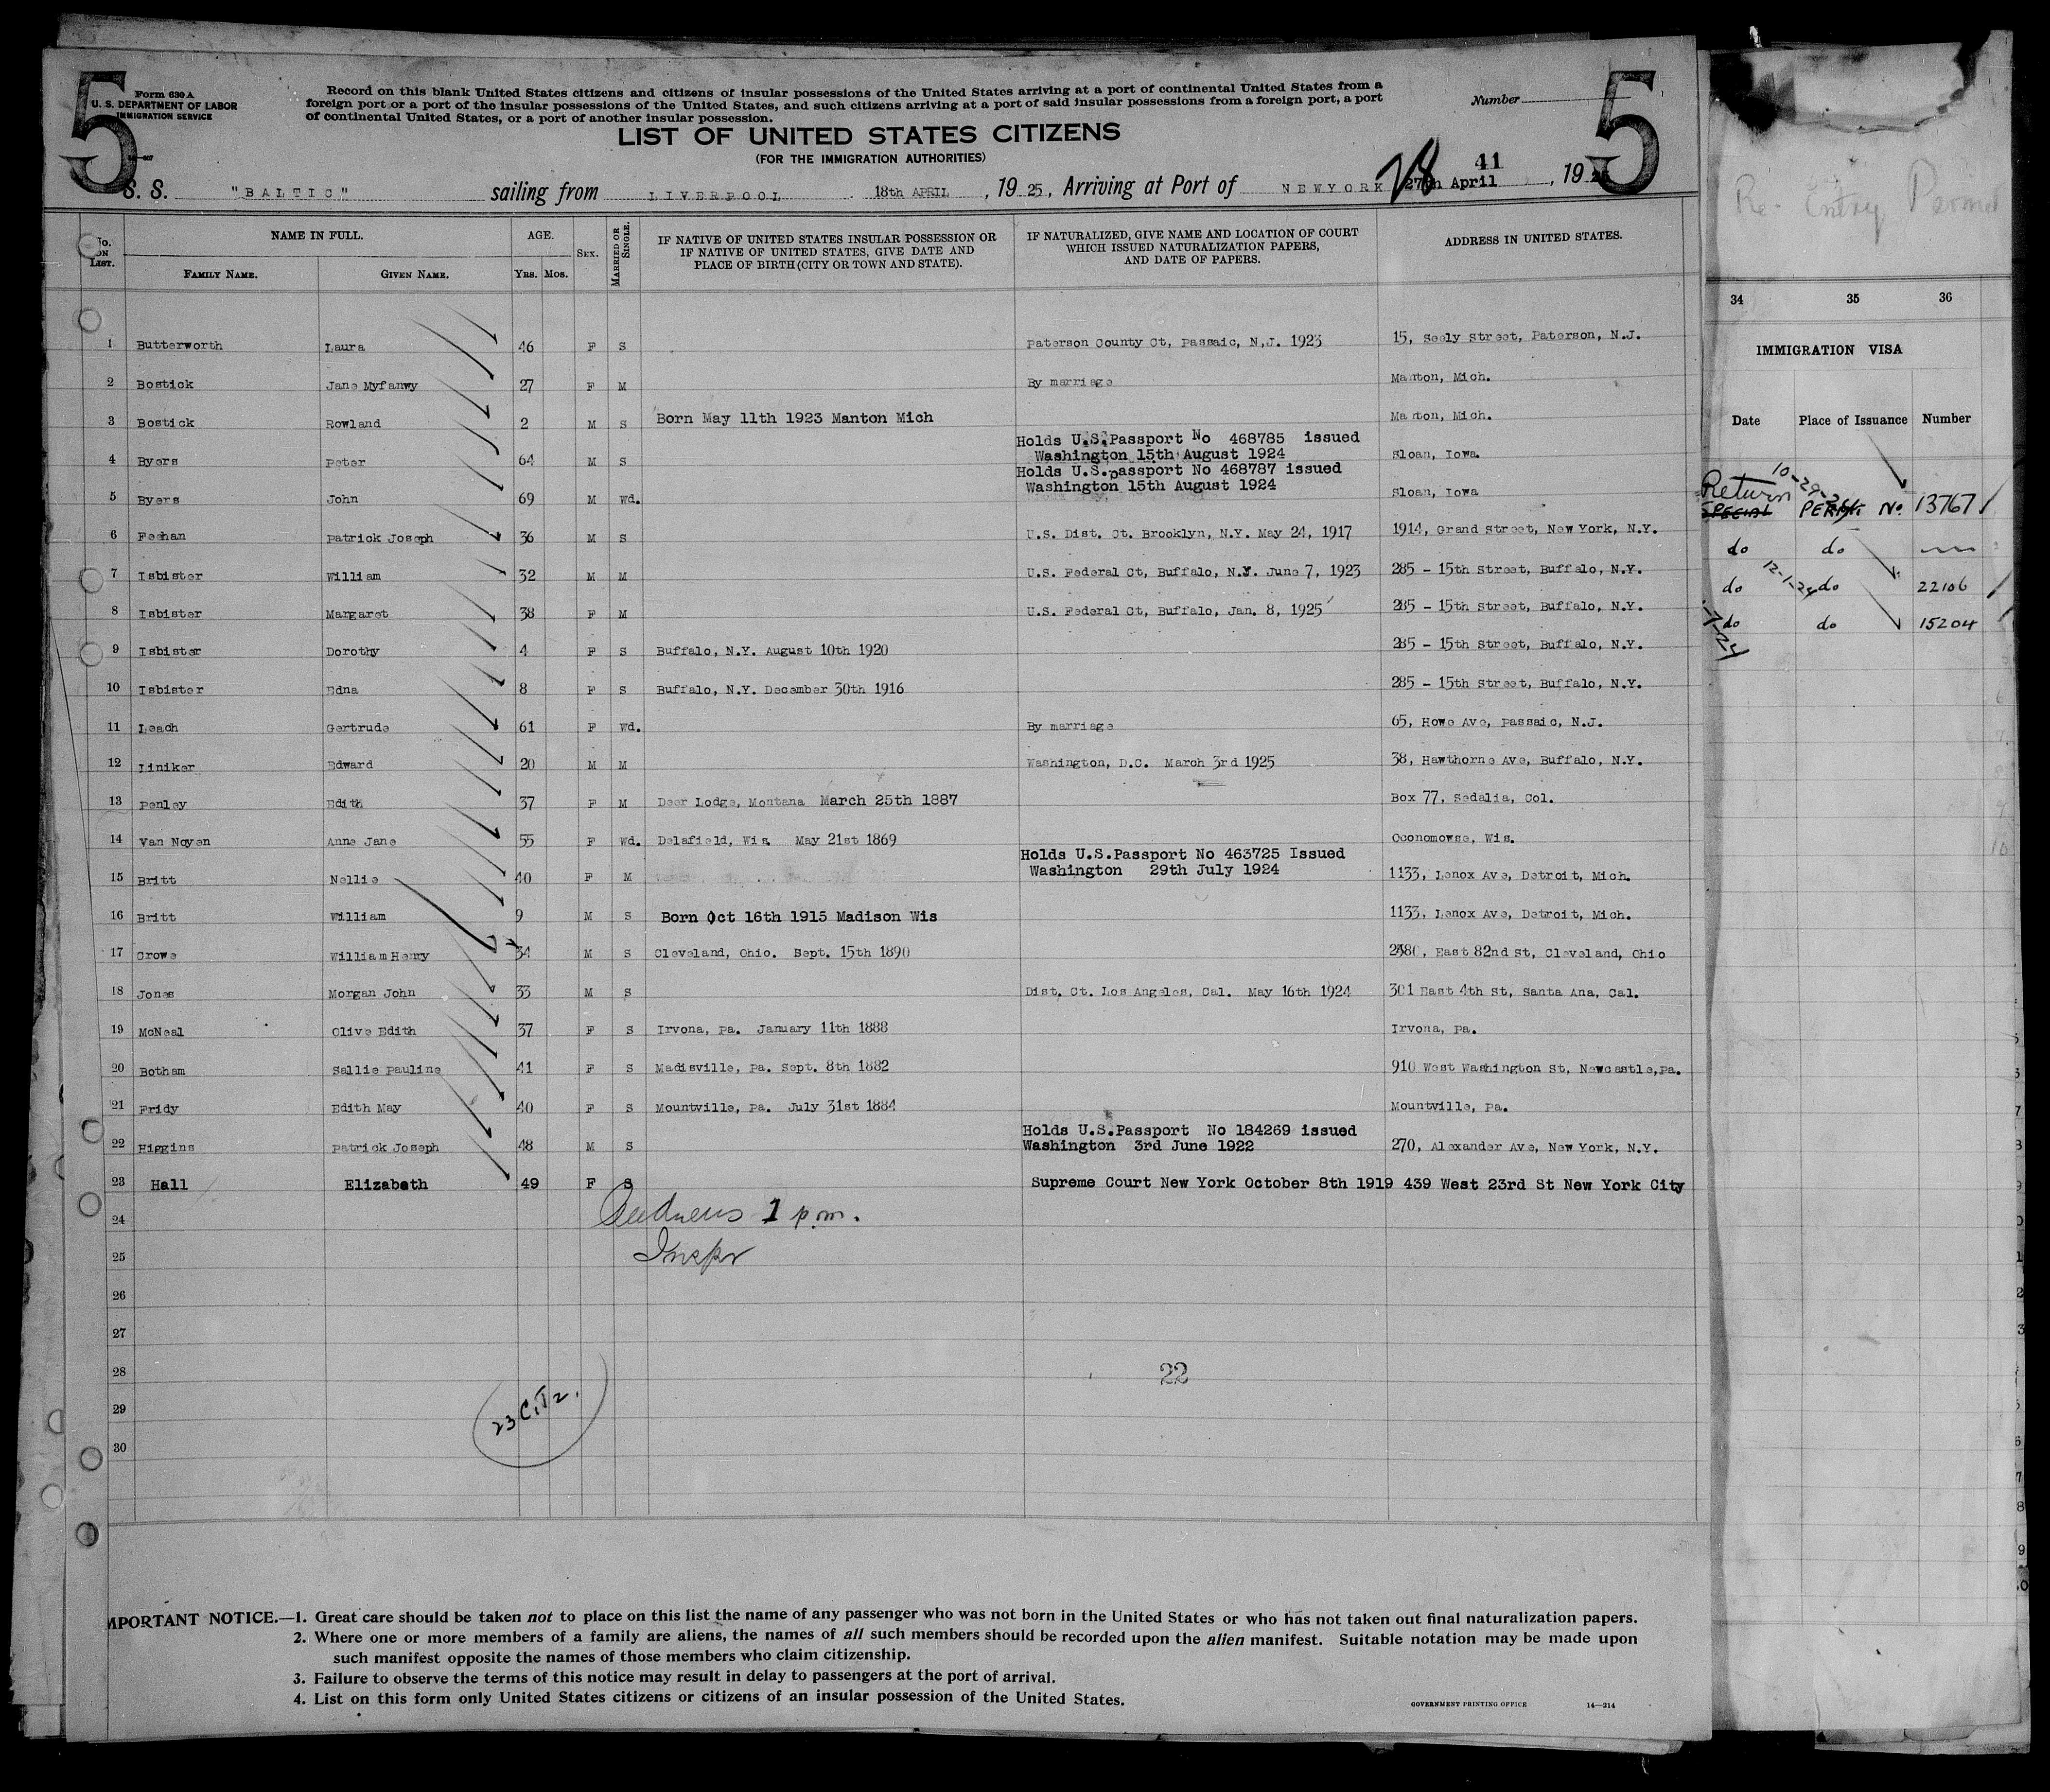 5
5
Form 630 A
U. S. DEPARTMENT OF LABOR
IMMIGRATION SERVICE
Record on this blank United States citizens and citizens of insular possessions of the United States arriving at a port of continental United States from a
foreign port or a port of the insular possessions of the United States, and such citizens arriving at a port of said insular possessions from a foreign port, a port
of continental United States, or a port of another insular possession.
Number
LIST OF UNITED STATES CITIZENS
(FOR THE IMMIGRATION AUTHORITIES)
41
S. S. "BALTIC" sailing from LIVERPOOL 18th APRIL, 1925, Arriving at Port of NEWYORK 28 27th April, 1925
No. ON LIST. NAME IN FULL. AGE. SEX. MARRIED OR SINGLE. IF NATIVE OF UNITED STATES INSULAR POSSESSION OR IF NATIVE OF UNITED STATES, GIVE DATE AND PLACE OF BIRTH (CITY OR TOWN AND STATE). IF NATURALIZED, GIVE NAME AND LOCATION OF COURT WHICH ISSUED NATURALIZATION PAPERS, AND DATE OF PAPERS. ADDRESS IN UNITED STATES.
FAMILY NAME. GIVEN NAME. YRS. MOS.
1 Butterworth Laura 46 F S Paterson County Ct, Passaic, N.J. 1923 15, Seely Street, Paterson, N.J.
2 Bostick Jane Myfanwy 27 F M By marriage Manton, Mich.
3 Bostick Rowland 2 M S Born May 11th 1923 Manton Mich Manton, Mich.
Holds U.S.Passport No 468785 issued
4 Byers Peter 64 M S Washington 15th August 1924 Sloan, Iowa.
Holds U.S.passport No 468787 issued
5 Byers John 69 M Wd. Washington 15th August 1924 Sloan, Iowa
6 Feehan Patrick Joseph 36 M S U.S. Dist. Ct. Brooklyn, N.Y. May 24, 1917 1914, Grand Street, New York, N.Y.
7 Isbister William 32 M M U.S. Federal Ct, Buffalo, N.Y. June 7, 1923 285 - 15th Street, Buffalo, N.Y.
8 Isbister Margaret 38 F M U.S. Federal Ct, Buffalo, Jan. 8, 1925 285 - 15th Street, Buffalo, N.Y.
9 Isbister Dorothy 4 F S Buffalo, N.Y. August 10th 1920 285 - 15th Street, Buffalo, N.Y.
10 Isbister Edna 8 F S Buffalo, N.Y. December 30th 1916 285 - 15th Street, Buffalo, N.Y.
11 Leach Gertrude 61 F Wd. By marriage 65, Howe Ave, Passaic, N.J.
12 Liniker Edward 20 M M Washington, D.C. March 3rd 1925 38, Hawthorne Ave, Buffalo, N.Y.
13 Penley Edith 37 F M Deer Lodge, Montana March 25th 1887 Box 77, Sedalia, Col.
14 Van Noyen Anne Jane 55 F Wd. Delafield, Wis. May 21st 1869 Oconomowse, Wis.
Holds U.S.Passport No 463725 Issued
15 Britt Nellie 40 F M Washington 29th July 1924 1133, Lenox Ave, Detroit, Mich.
16 Britt William 9 M S Born Oct 16th 1915 Madison Wis 1133, Lenox Ave, Detroit, Mich.
17 Crowe William Henry 34 M S Cleveland, Ohio. Sept. 15th 1890 East 82nd St, Cleveland, Ohio
18 Jones Morgan John 33 M S Dist. Ct. Los Angeles, Cal. May 16th 1924 301 East 4th St, Santa Ana, Cal.
19 McNeal Olive Edith 37 F S Irvona, Pa. January 11th 1888 Irvona, Pa.
20 Botham Sallie Pauline 41 F S Madisville, Pa. Sept. 8th 1882 910 West Washington St, Newcastle, Pa.
21 Fridy Edith May 40 F S Mountville, Pa. July 31st 1884 Mountville, Pa.
Holds U.S.Passport No 184269 issued
22 Higgins Patrick Joseph 48 M S Washington 3rd June 1922 270, Alexander Ave, New York, N.Y.
23 Hall Elizabeth 49 F S Supreme Court New York October 8th 1919 439 West 23rd St New York City
24 1 p.m.
25 Inspr
26
27
28 22
29 23 C.T2.
30
IMPORTANT NOTICE.—1. Great care should be taken not to place on this list the name of any passenger who was not born in the United States or who has not taken out final naturalization papers.
2. Where one or more members of a family are aliens, the names of all such members should be recorded upon the alien manifest. Suitable notation may be made upon
such manifest opposite the names of those members who claim citizenship.
3. Failure to observe the terms of this notice may result in delay to passengers at the port of arrival.
4. List on this form only United States citizens or citizens of an insular possession of the United States.
GOVERNMENT PRINTING OFFICE 14—214
Re-Entry Permit
34 35 36
IMMIGRATION VISA
Date Place of Issuance Number
10-29-24
Return SPECIAL PERMIT No. 13767
do do
12-1-24
do do 22106
do do 15204